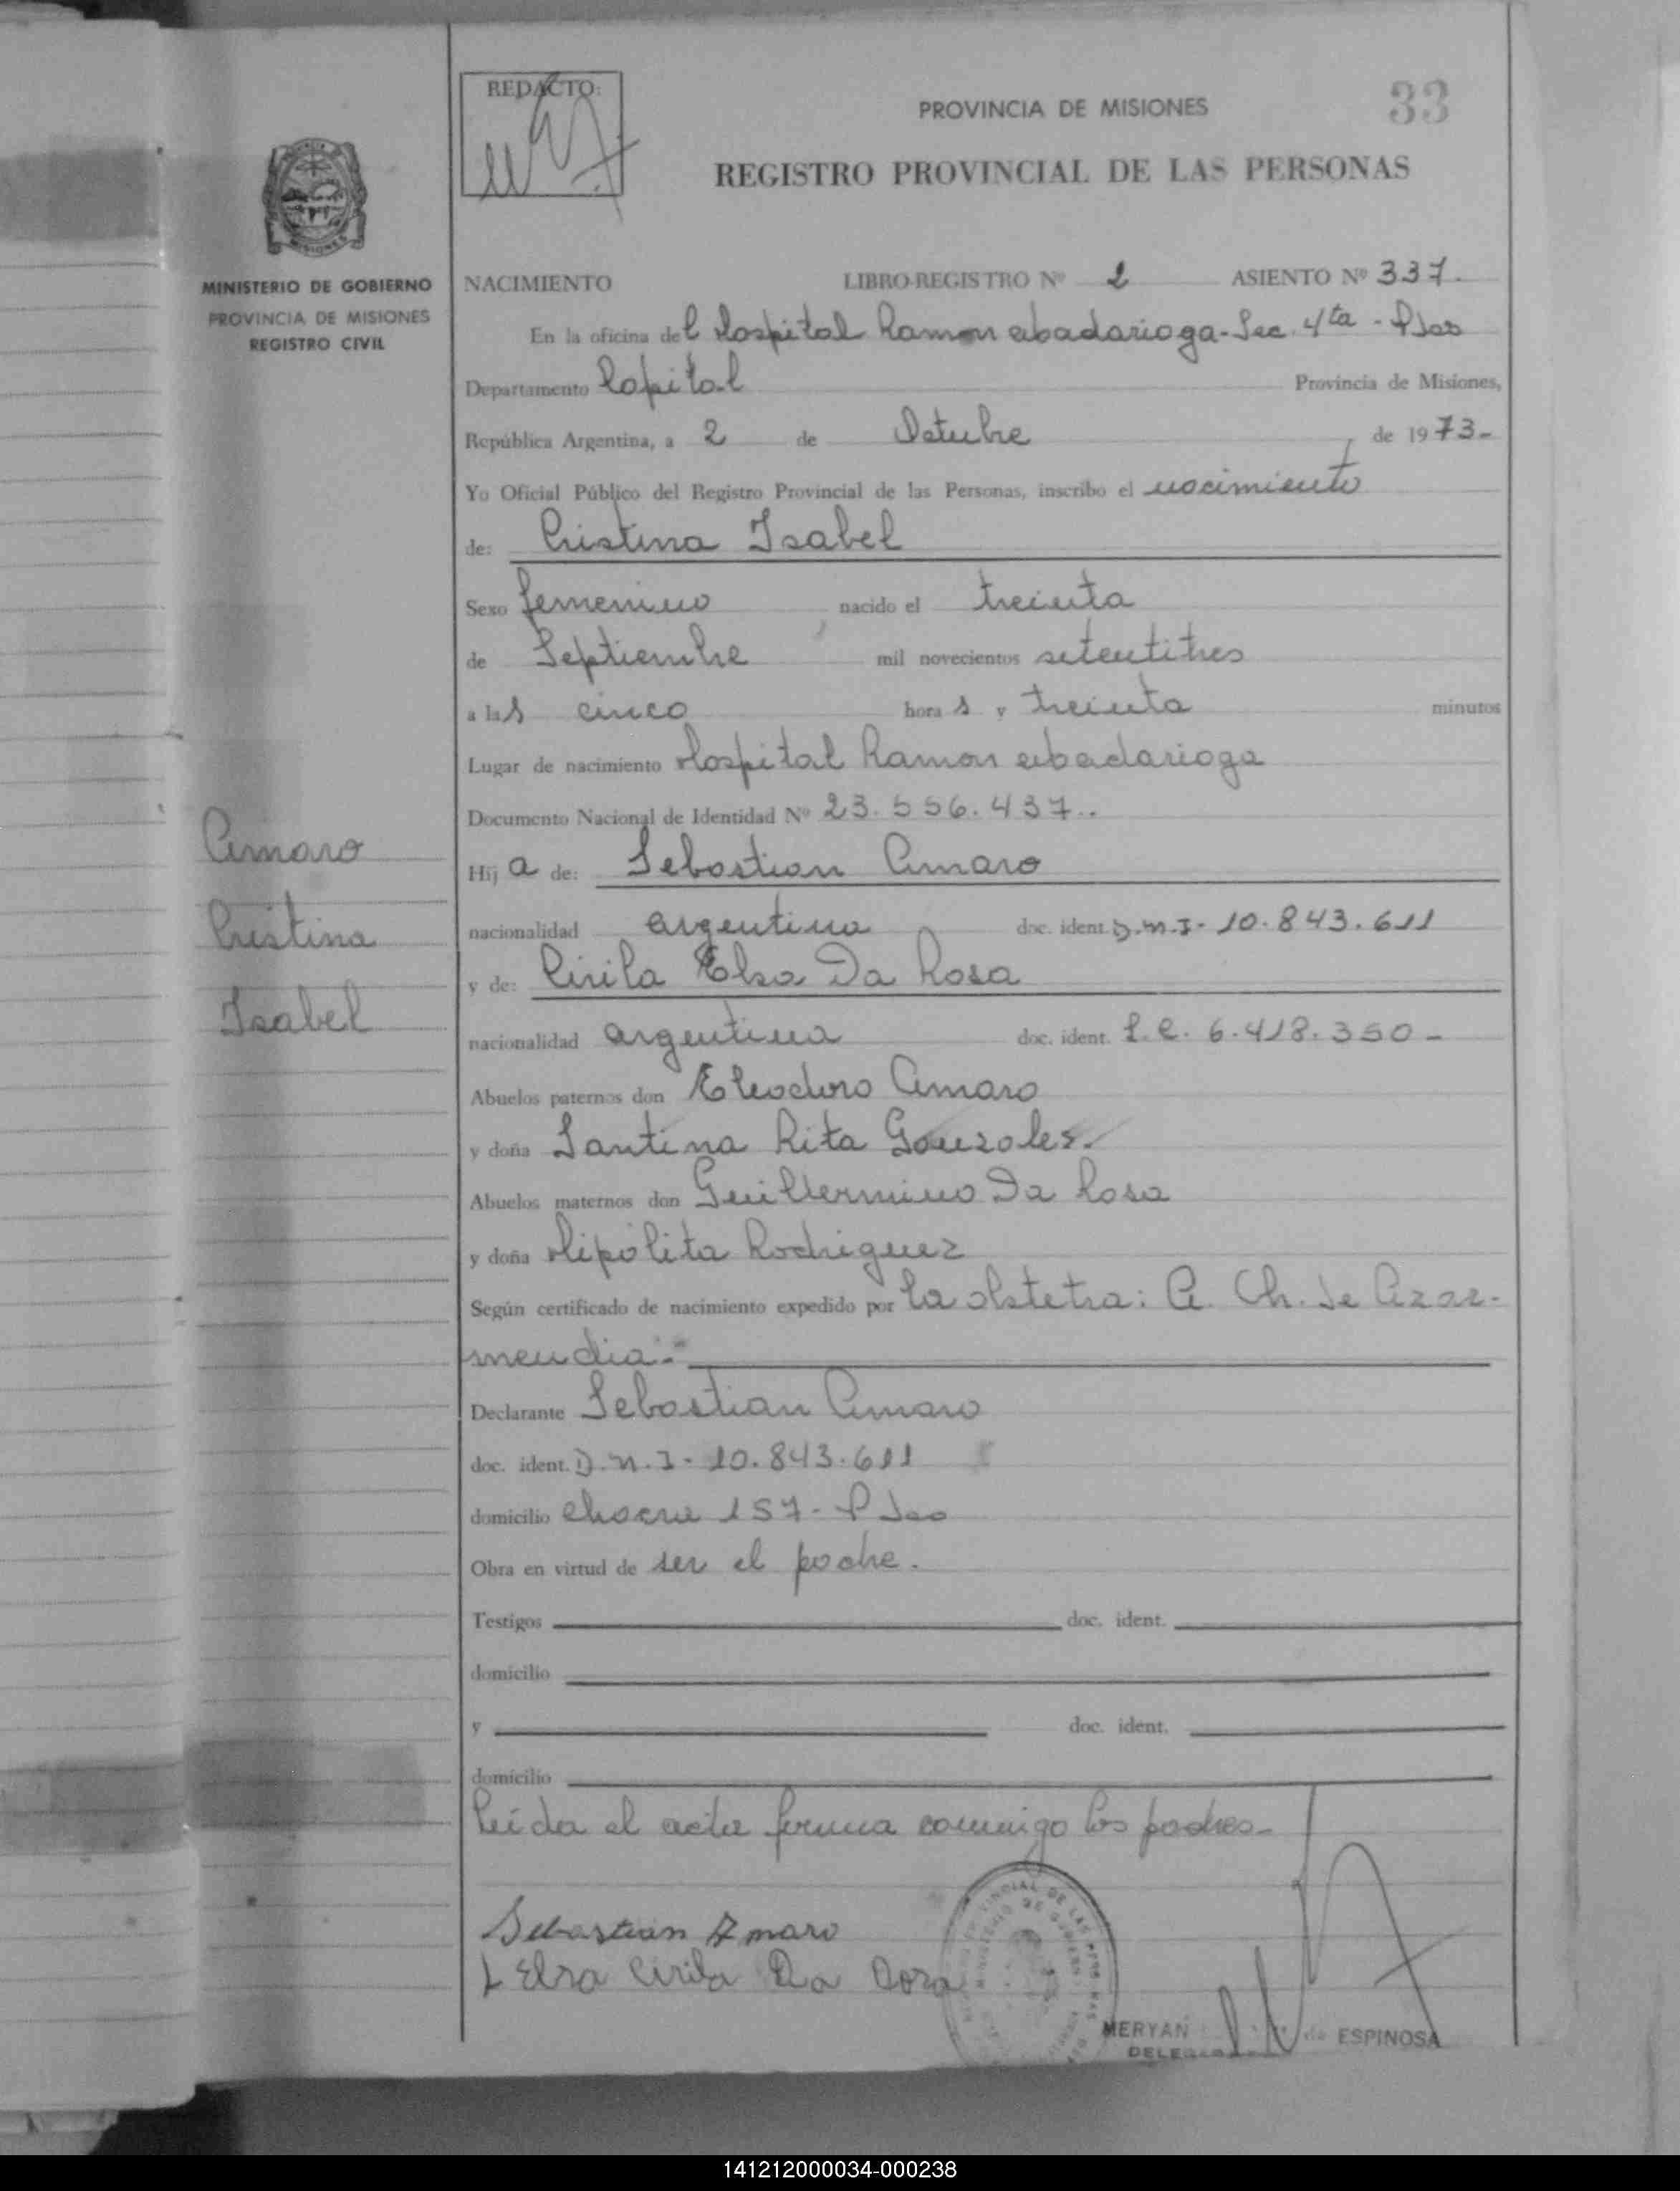 REDACTO:
PROVINCIA DE MISIONES
33
REGISTRO PROVINCIAL DE LAS PERSONAS
MINISTERIO DE GOBIERNO
PROVINCIA DE MISIONES
REGISTRO CIVIL
NACIMIENTO LIBRO-REGISTRO Nº 2 ASIENTO Nº 337.
En la oficina del Hospital Ramon abadarioga-Sec. 4ta - Pdas
Departamento Capital Provincia de Misiones,
República Argentina, a 2 de Octubre, de 1973-
Yo Oficial Público del Registro Provincial de las Personas, inscribo el nacimiento
de: Cristina Isabel
Sexo femenino, nacido el treinta
de Septiembre mil novecientos setentitres
a las cinco horas y treinta minutos
Lugar de nacimiento Hospital Ramon abadarioga
Documento Nacional de Identidad Nº 23.556.437..
Hija de: Sebastian Amaro
nacionalidad argentina doc. ident. D.N.I- 10.843.611
y de: Cirila Elsa Da Rosa
nacionalidad argentina doc. ident. L.C. 6.418.350-
Abuelos paternos don Eleodoro Amaro
y doña Santina Rita Gonzales.
Abuelos maternos don Guillermino Da Rosa
y doña Hipólita Rodriguez
Según certificado de nacimiento expedido por la obstetra: A. Ch. de Azar-
mendia.-
Declarante Sebastian Amaro
doc. ident. D.N.I- 10.843.611
domicilio chacra 157- Pdas
Obra en virtud de ser el padre.
Testigos doc. ident.
domicilio
y doc. ident.
domicilio
Leída el acta firma conmigo los padres-
Amaro
Cristina
Isabel
Sebastian Amaro
Elsa Cirila Da Rosa
MERYAN de ESPINOSA
141212000034-000238